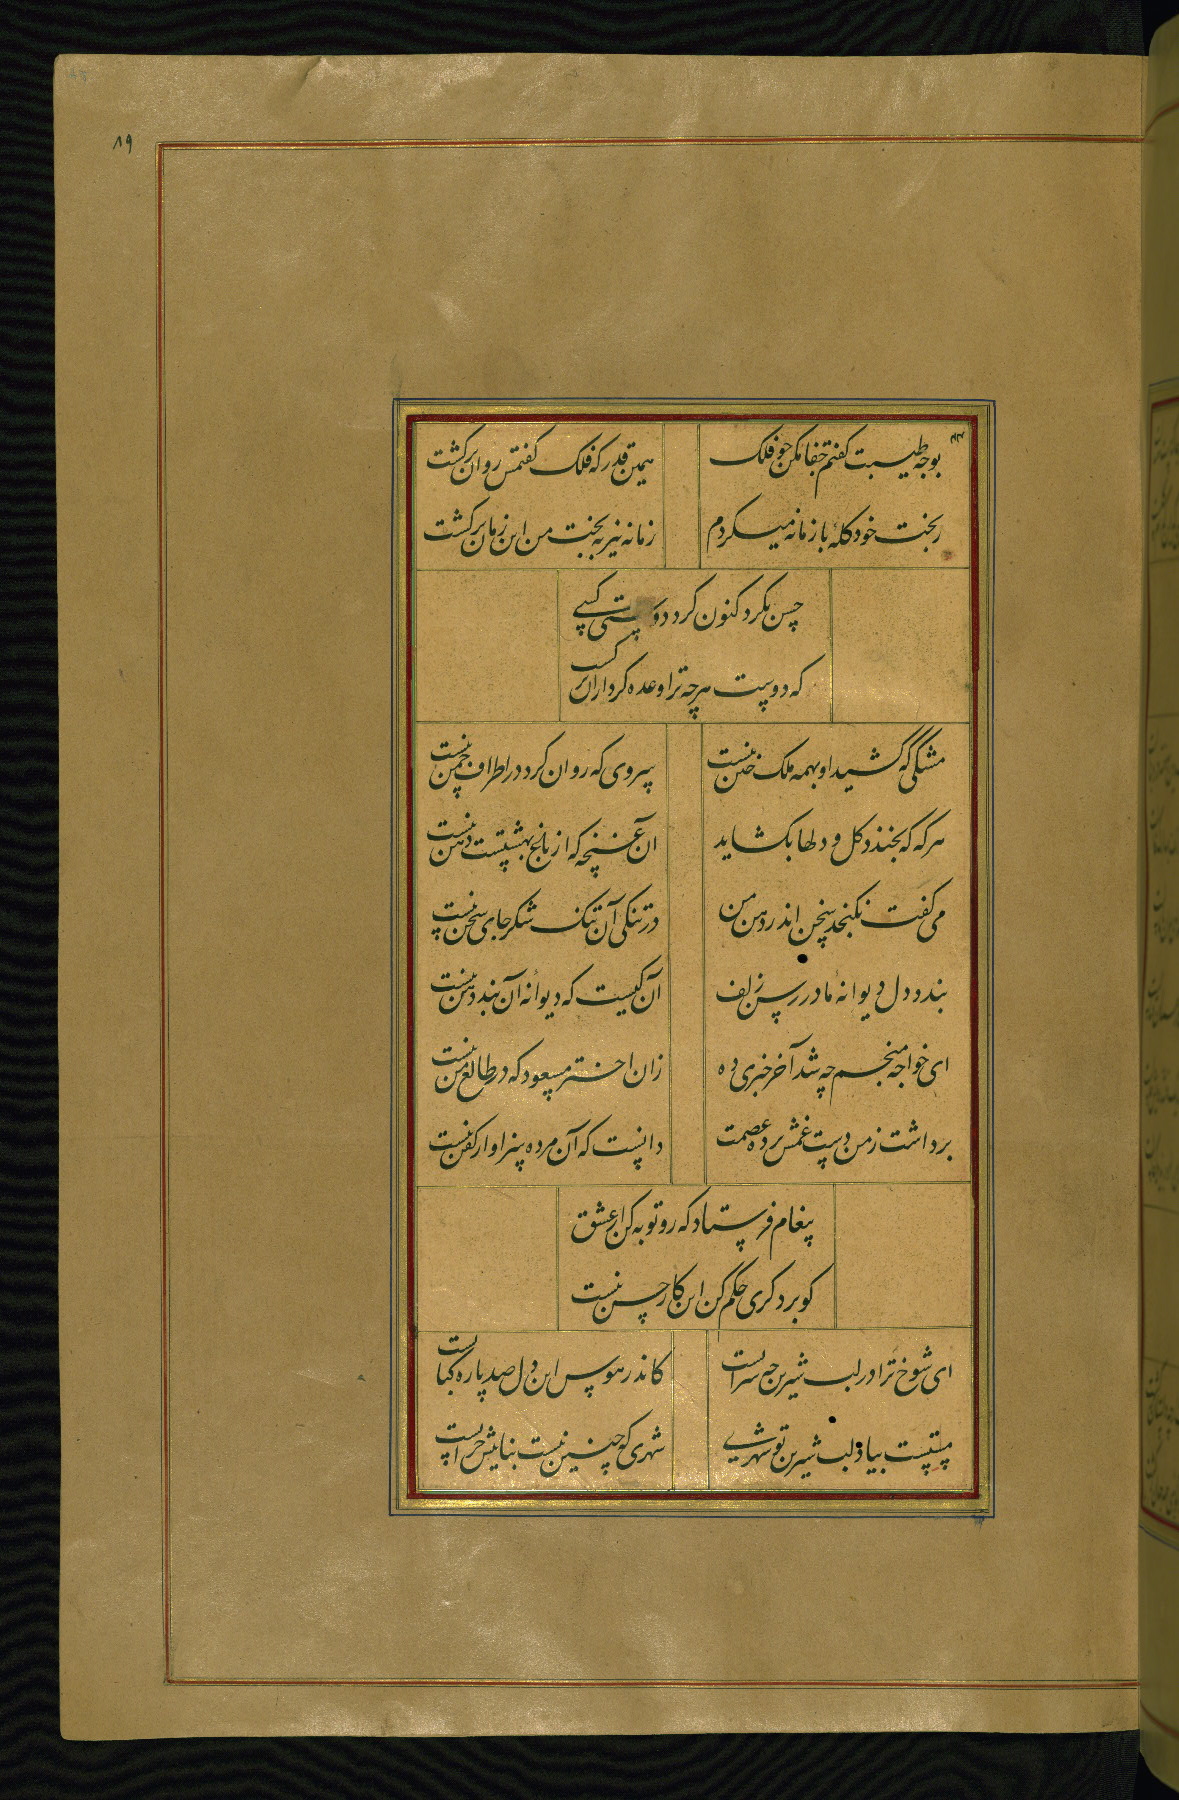 ۸۹
بوجه طیبت گفتم جفا مکن جو فلک
همین قدر که فلک گفتمش روان برگشت
زبخت خود گله با زمانه میکردم
زمانه نیز به بخت من این زمان برگشت
حسن نکرد کنون کرد دوستی کسی
که دوست هرچه ترا وعده کرد ازان برگشت
مشگی که کشید او بهمه ملک ختن نیست
سروی که روان کرد در اطراف چمن نیست
هرگه که بخندد گل و دلها بگشاید
ان غنچه که از باغ بهشتست دهن نیست
می گفت نگنجد سخن اندر دهن من
در تنگی آن تنگ شکر جای سخن نیست
بندد دل دیوانه ما در رسن زلف
آن کیست که دیوانه آن بند رسن نیست
ای خواجه منجم چه شد آخر خبری ده
زان اختر مسعود که در طالع من نیست
برداشت ز من دست غمش برده عصمت
دانست که آن مرده سزاوار کفن نیست
پیغام فرستاد که رو توبه کن از عشق
کو بر دگری حکم کن این کار حسن نیست
ای شوخ ترا در لب شیرین چه سراست
کاندر هوس این دل صد پاره کباست
مستست بیاد لب شیرین تو شهری
شهری که چنین نیست بنایش خراست